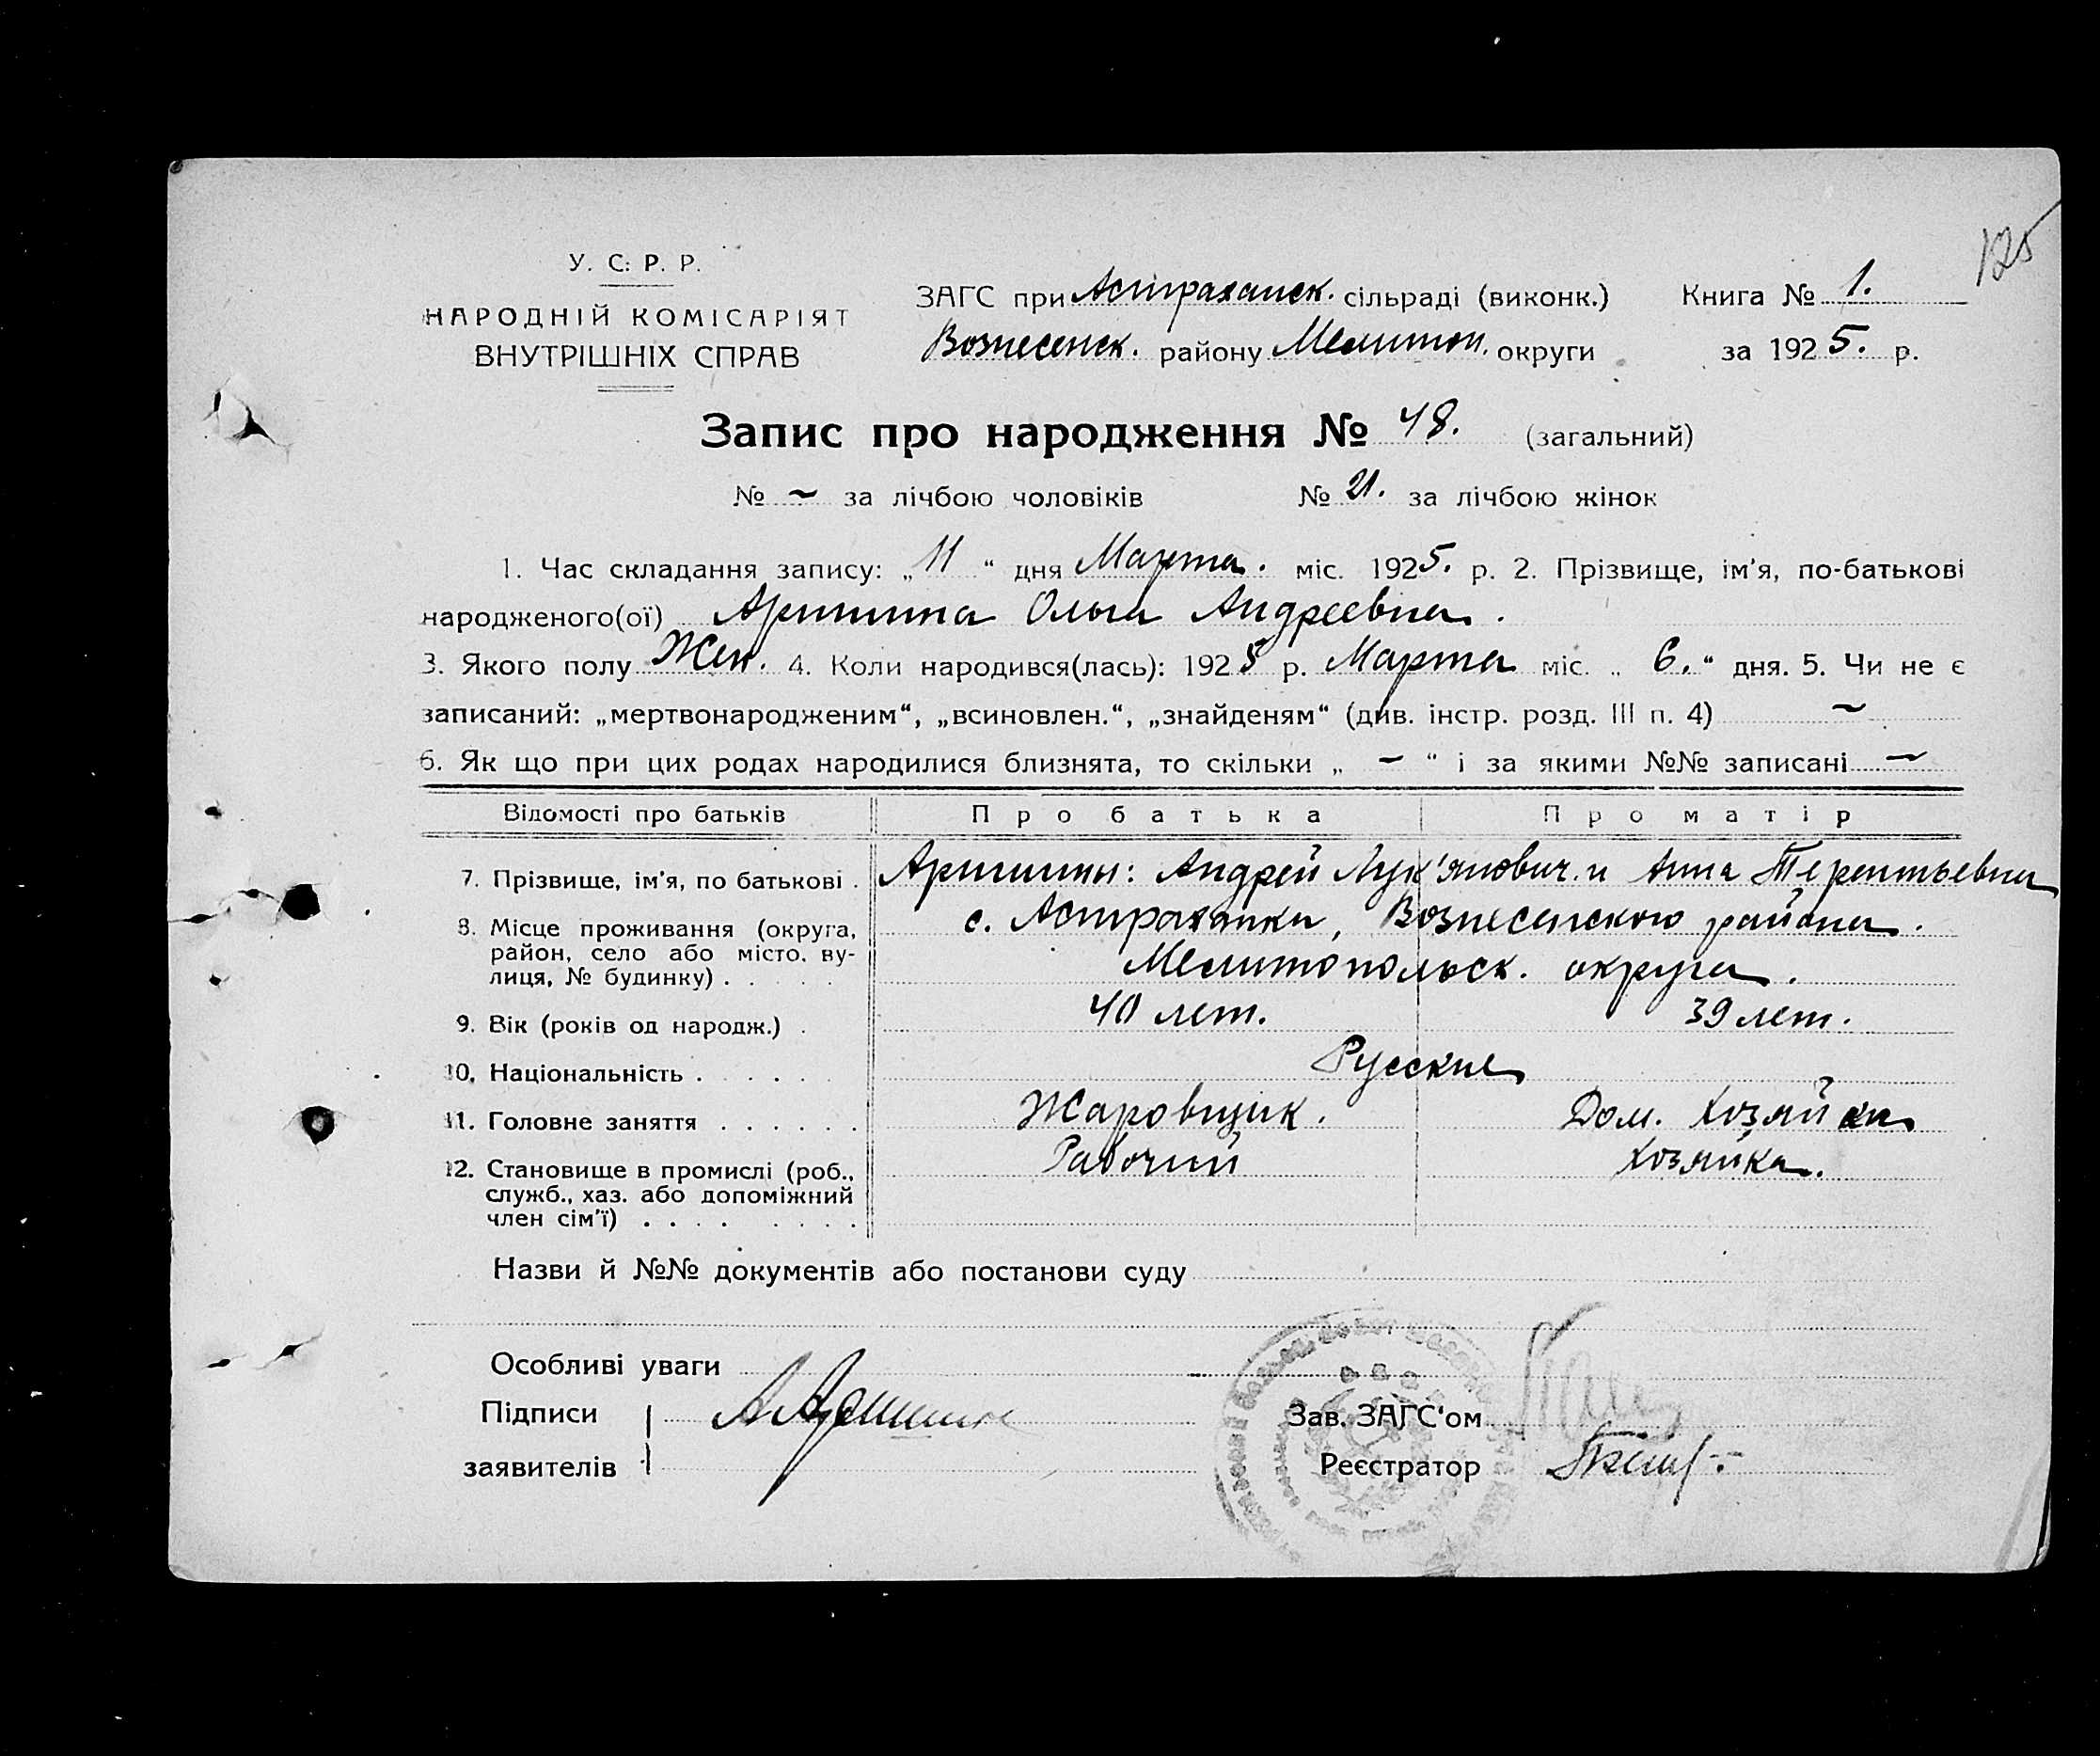 125
У. С. Р. Р.
НАРОДНІЙ КОМІСАРІЯТ
ВНУТРІШНІХ СПРАВ
ЗАГС при Астраханск. сільраді (виконк.) Книга № 1.
Вознесенск. району Мелитоп. округи за 1925. р.
Запис про народження № 48. (загальний)
№ ~ за лічбою чоловіків № 21. за лічбою жінок
1. Час складання запису: „11“ дня Марта. міс. 1925. р. 2. Прізвище, ім'я, по-батькові
народженого(ої) Аришина Ольга Андреевна.
3. Якого полу Жен. 4. Коли народився(лась): 1925 р. Марта міс. „6.“ дня. 5. Чи не є
записаний: „мертвонародженим“, „всиновлен.“, „знайденям“ (див. інстр. розд. III п. 4) ~
6. Як що при цих родах народилися близнята, то скільки „ ~ “ і за якими №№ записані ~
Відомості про батьків Про батька Про матір
7. Прізвище, ім'я, по батькові . Аришины: Андрей Лук'янович и Анна Терентьевна
8. Місце проживання (округа, с. Астраханка, Вознесенского района.
район, село або місто, ву-
лиця, № будинку) . . . . . Мелитопольск. округа.
9. Вік (років од народж.) . 40 лет. 39 лет.
10. Національність . . . . . Русские
11. Головне заняття . . . . . . Жаровщик. Дом. хозяйка
12. Становище в промислі (роб., Рабочий хозяйка.
служб., хаз. або допоміжний
член сім'ї) . . . . . . . .
Назви й №№ документів або постанови суду
Особливі уваги
Підписи А Аришин Зав. ЗАГС'ом
заявителів Реєстратор